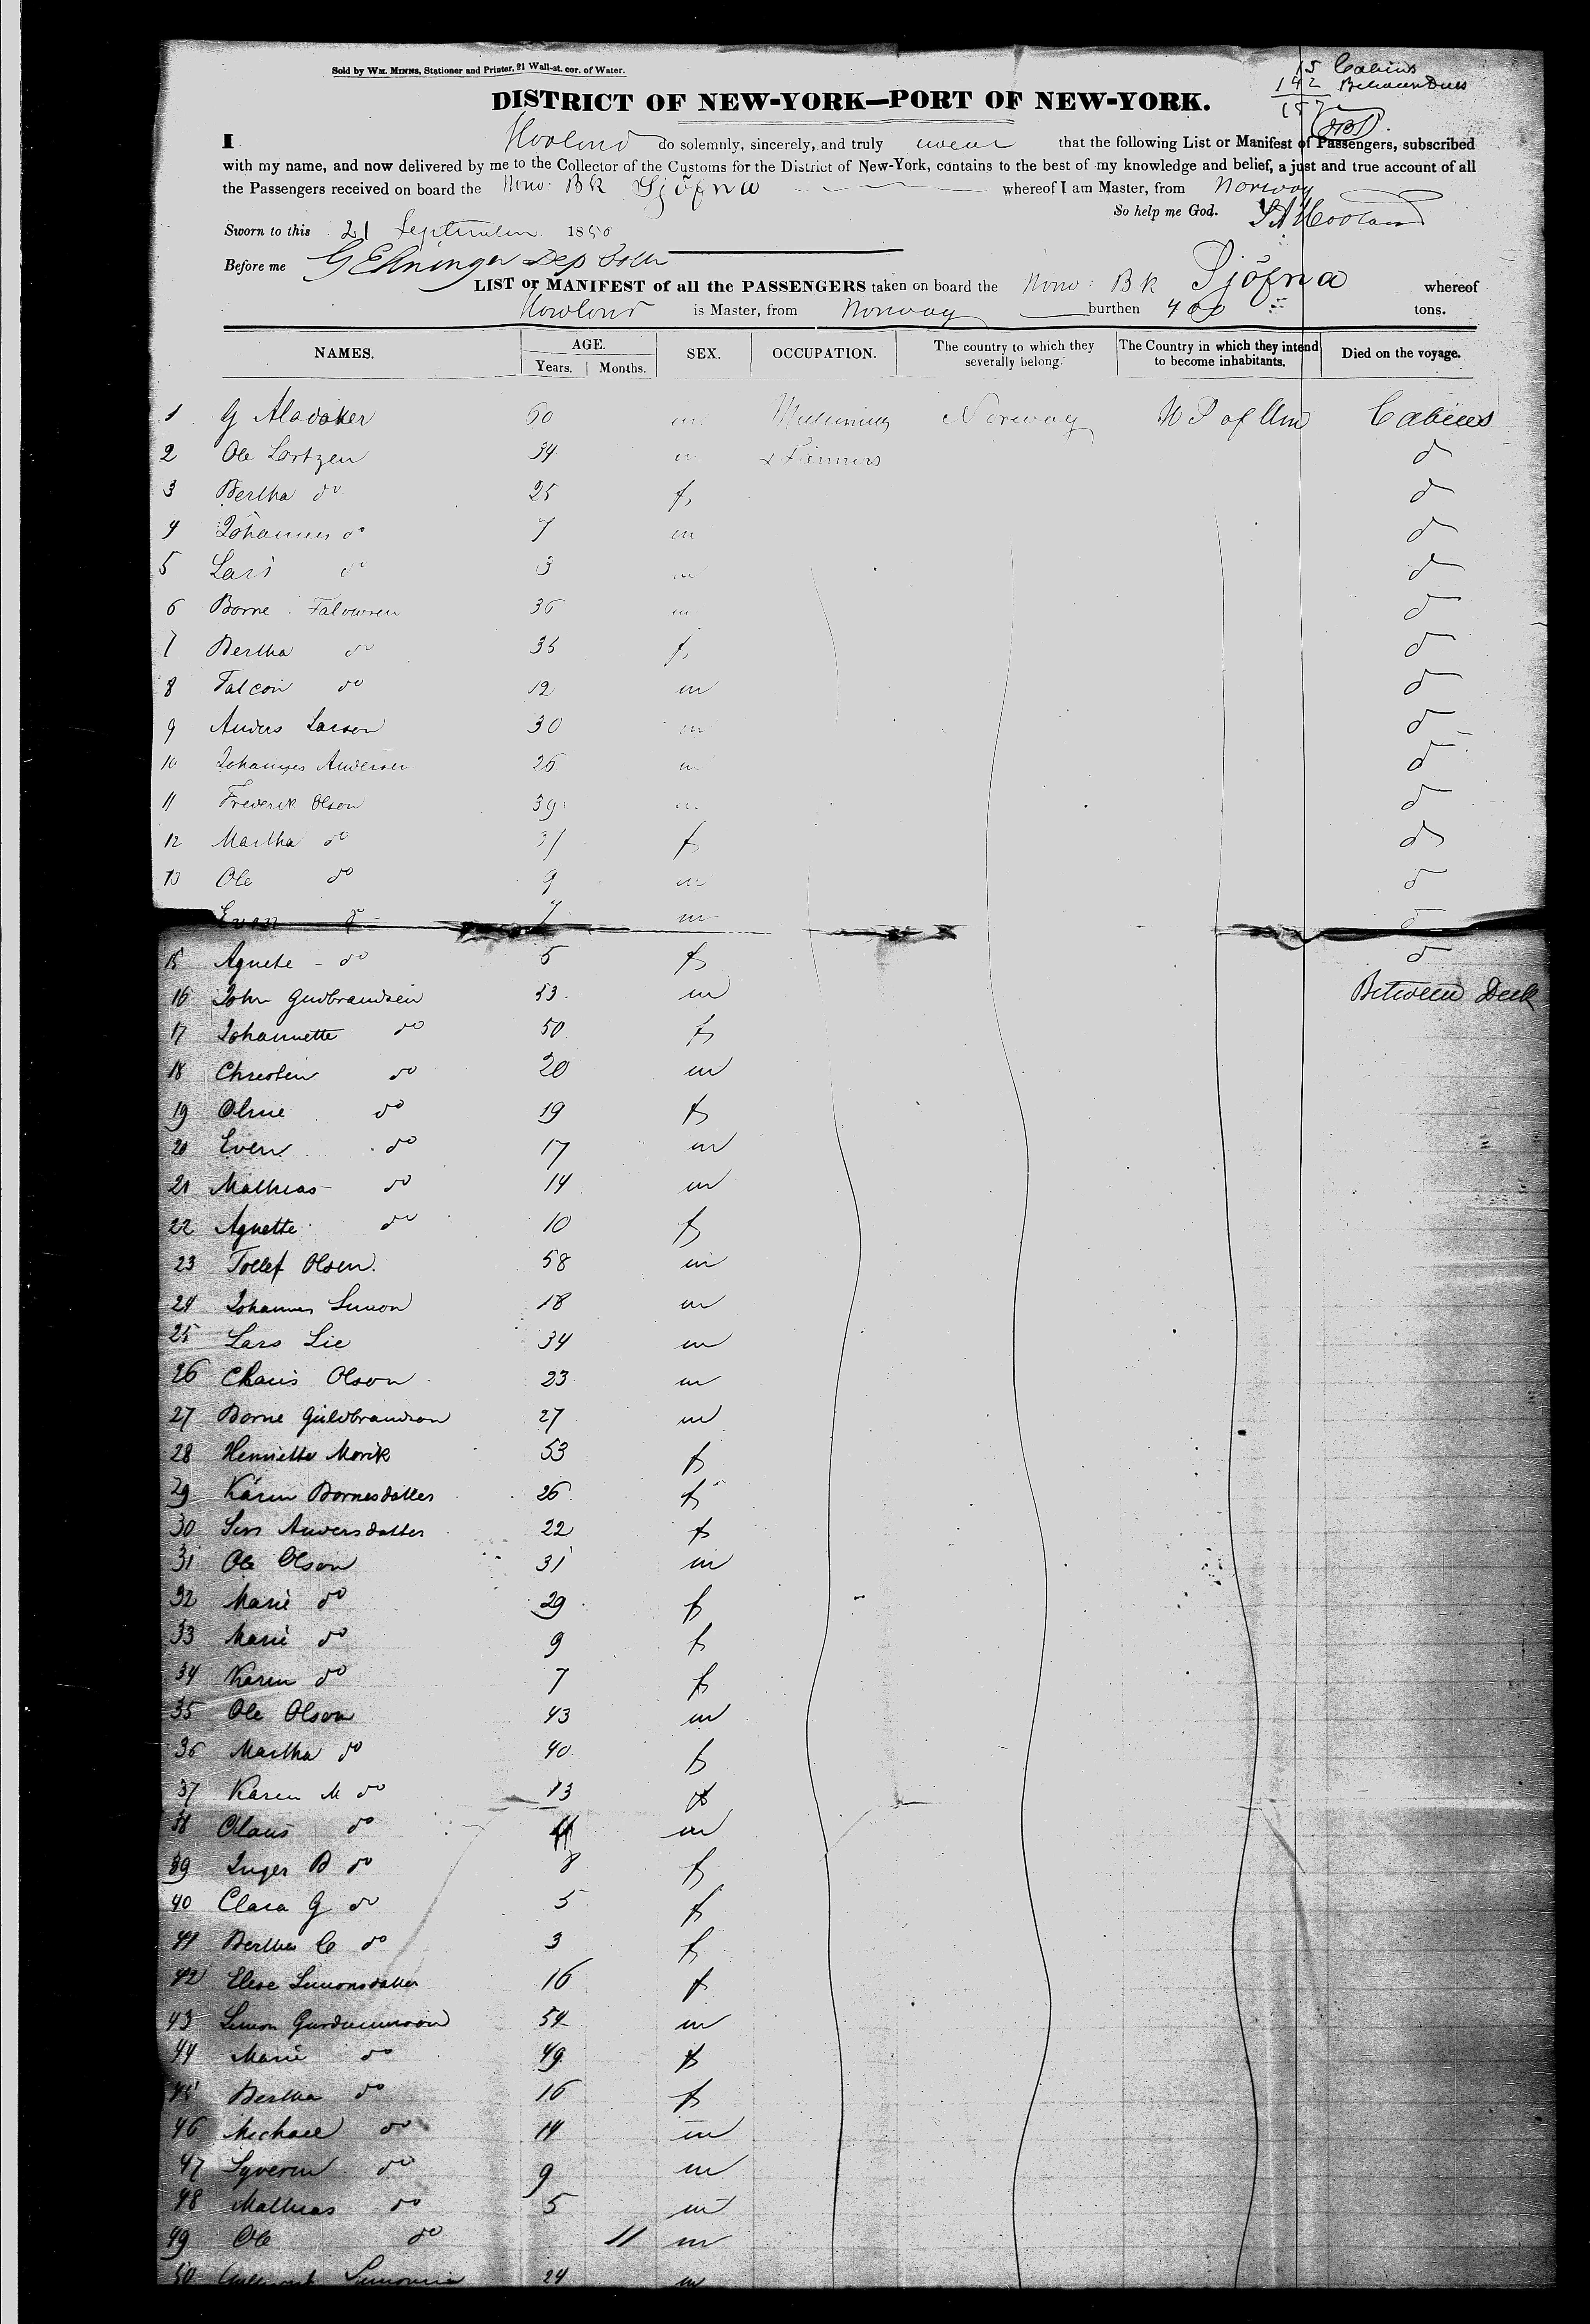 Sold by WM. MINNS, Stationer and Printer, 21 Wall-st. cor. of Water.
15 Cabins
142 Between Decks
157
DISTRICT OF NEW-YORK—PORT OF NEW-YORK.
I do solemnly, sincerely, and truly swear that the following List or Manifest of Passengers, subscribed
with my name, and now delivered by me to the Collector of the Customs for the District of New-York, contains to the best of my knowledge and belief, a just and true account of all
the Passengers received on board the Norw: Bk Sjöfna whereof I am Master, from Norway
So help me God.
Sworn to this 21 September 1850
Before me
LIST or MANIFEST of all the PASSENGERS taken on board the Norw: Bk Sjöfna whereof
is Master, from Norway burthen 400 tons.
NAMES. AGE. Years. Months. SEX. OCCUPATION. The country to which they severally belong. The Country in which they intend to become inhabitants. Died on the voyage.
1 G 60 m Norway Cabins
2 Ole Lartzen 34 m & Farmers d
3 Bertha do 25 f d
4 Johannes do 7 m d
5 Lars do 3 m d
6 Borne 36 m d
7 Bertha do 35 f d
8 Falcon do 12 m d
9 Anders Larson 30 m d
10 Johannes Andersen 26 m d
11 Frederik Olsen 39 m d
12 Martha do 31 f d
13 Ole do 9 m d
Even do 7 m d
15 Agnete do 5 f d
16 John Gudbrandsen 53 m Between Deck
17 Johannette do 50 f
18 Christen do 20 m
19 Oline do 19 f
20 Even do 17 m
21 Mathias do 14 m
22 Agnette do 10 f
23 Tollef Olsen. 58 m
24 Johannes Simon 18 m
25 Lars Lie 34 m
26 Olson 23 m
27 Borne Guldbrandson 27 m
28 Henriette Morik 53 f
29 Karen Bornesdatter 26 f
30 Siri Andersdatter 22 f
31 Ole Olson 31 m
32 Marie do 29 f
33 Marie do 9 f
34 Karen do 7 f
35 Ole Olson 43 m
36 Martha do 40 f
37 Karen M do 13 f
38 Olaus do 11 m
39 Inger B do 8 f
40 Clara G do 5 f
41 Berthe C do 3 f
42 Elese Simonsdatter 16 f
43 Simon 54 m
44 Marie do 49 f
45 Bertha do 16 f
46 Michael do 14 m
47 Syveren do 9 m
48 Mathias do 5 m
49 Ole do 11 m
50 24 m